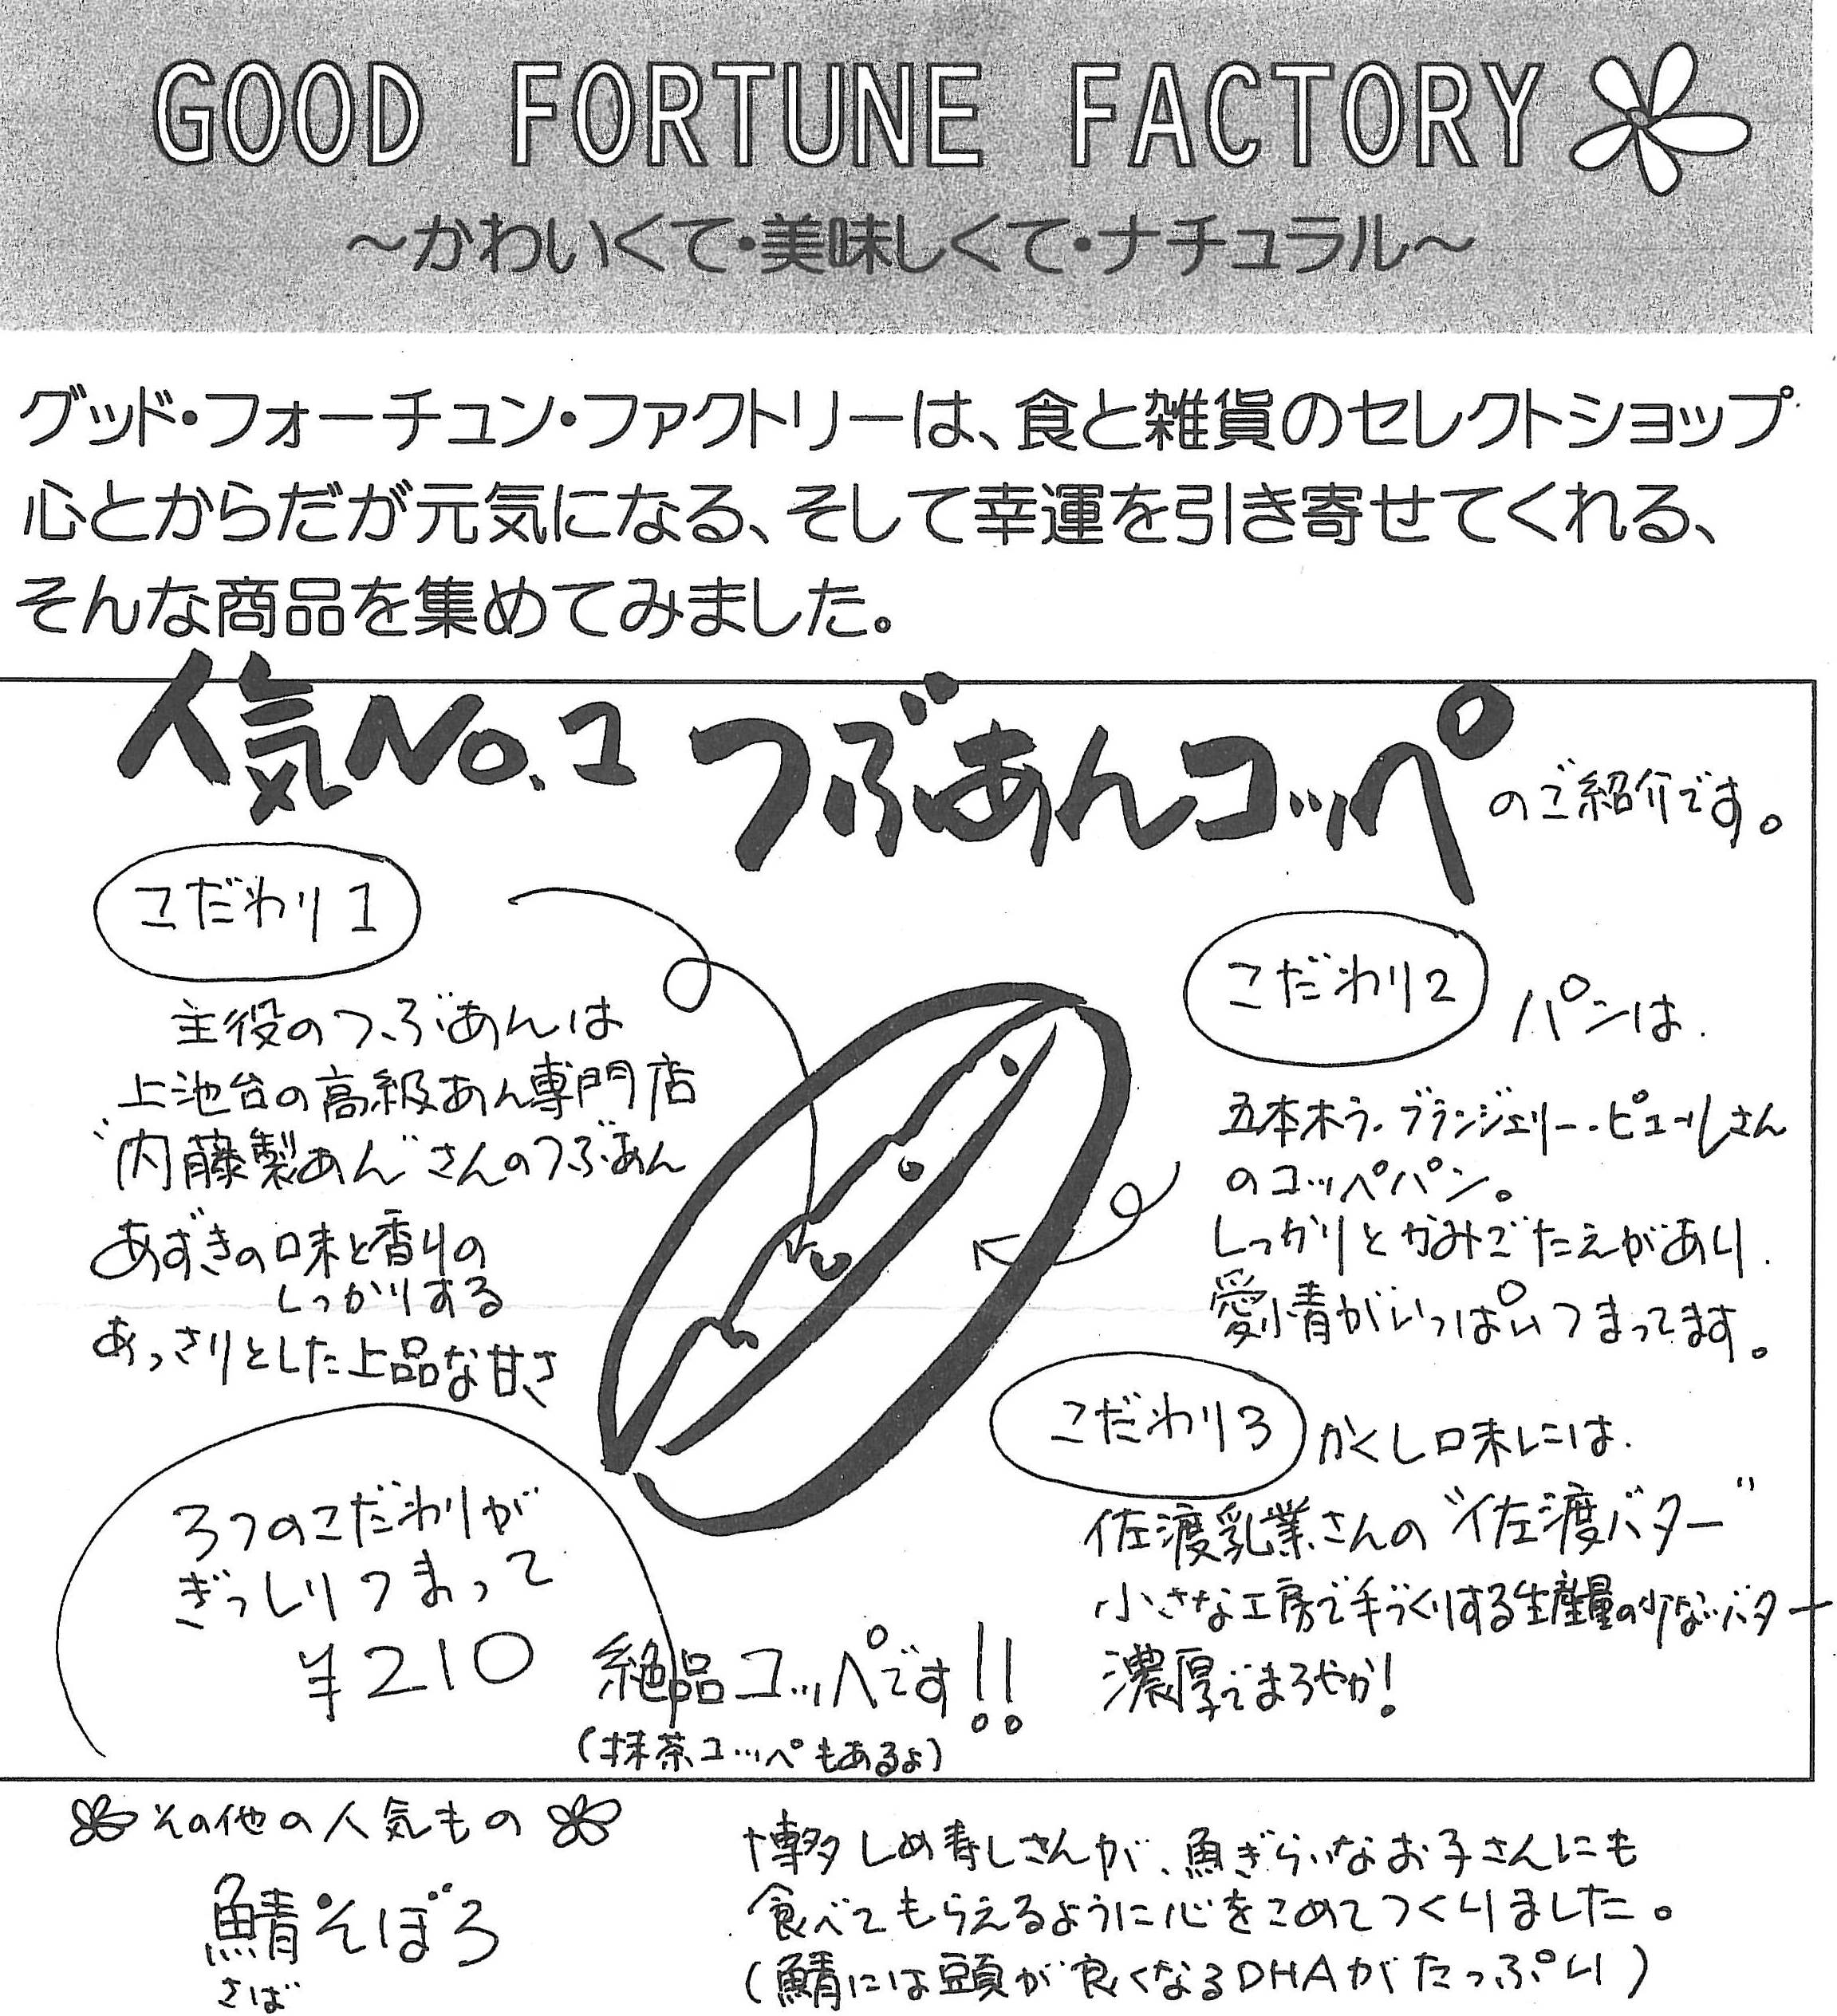 GOOD FORTUNE FACTORY
～かわいくて・美味しくて・ナチュラル～
グッド・フォーチュン・ファクトリーは、食と雑貨のセレクトショップ
心とからだが元気になる、そして幸運を引き寄せてくれる、
そんな商品を集めてみました。
人気No.1 つぶあんコッペのご紹介です。
こだわり1
主役のつぶあんは
上池台の高級あん専門店
"内藤製あん"さんのつぶあん
あずきの味と香りの
しっかりする
あっさりとした上品な甘さ
こだわり2 パンは
五本木ラ・ブランジェリー・ピュールさん
のコッペパン。
しっかりとかみごたえがあり
愛情がいっぱいつまってます。
こだわり3 かくし味には
佐渡乳業さんの"佐渡バター"
小さな工房で手づくりする生産量の少ないバター
濃厚でまろやか!
3つのこだわりが
ぎっしりつまって
¥210
絶品コッペです!!
(抹茶コッペもあるよ)
その他の人気もの
鯖そぼろ
さば
博多しめ寿しさんが、魚ぎらいなお子さんにも
食べてもらえるように心をこめてつくりました。
(鯖には頭が良くなるDHAがたっぷり)